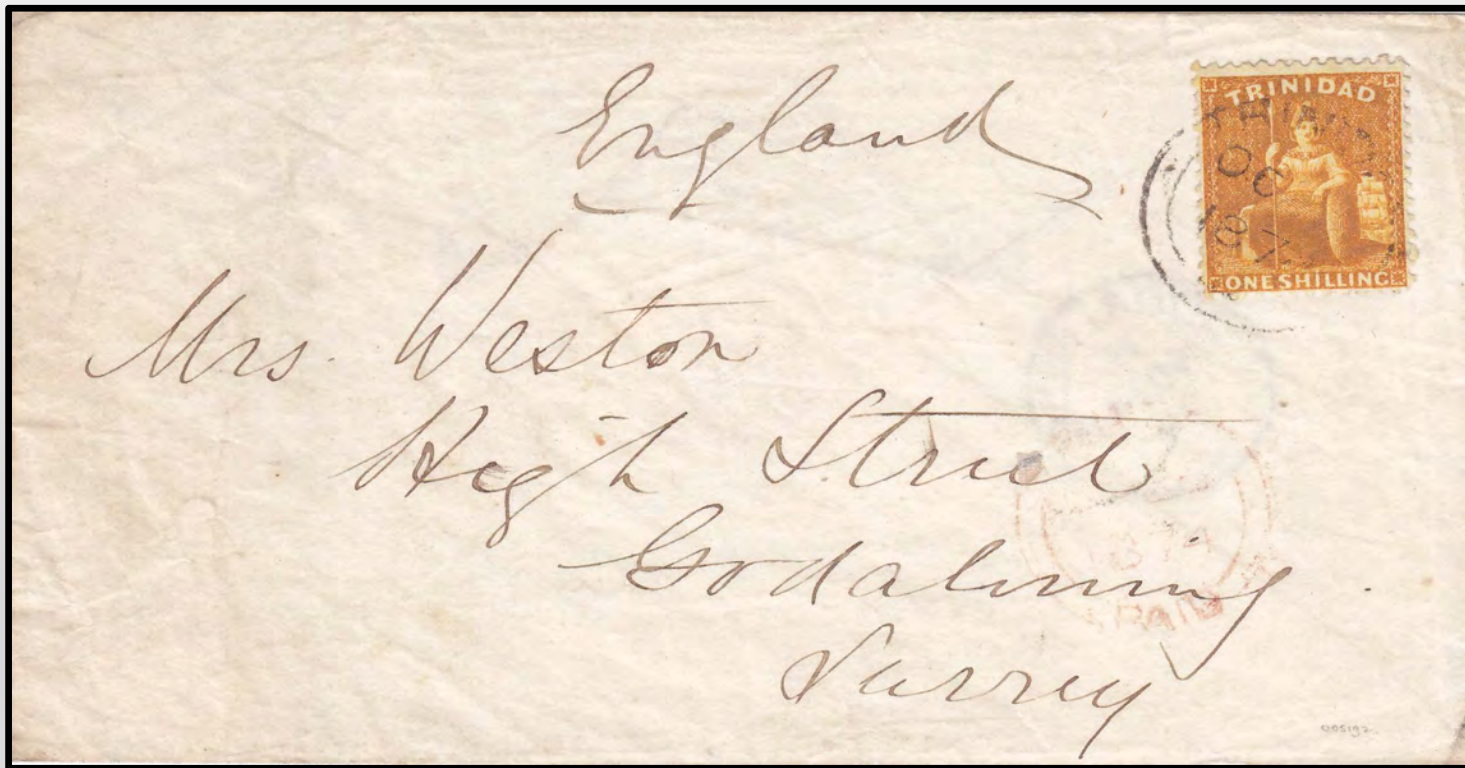 England
TRINIDAD
OC
ONE SHILLING
Mrs. Weston
High Street
Godalming
Surrey
PAID
005192